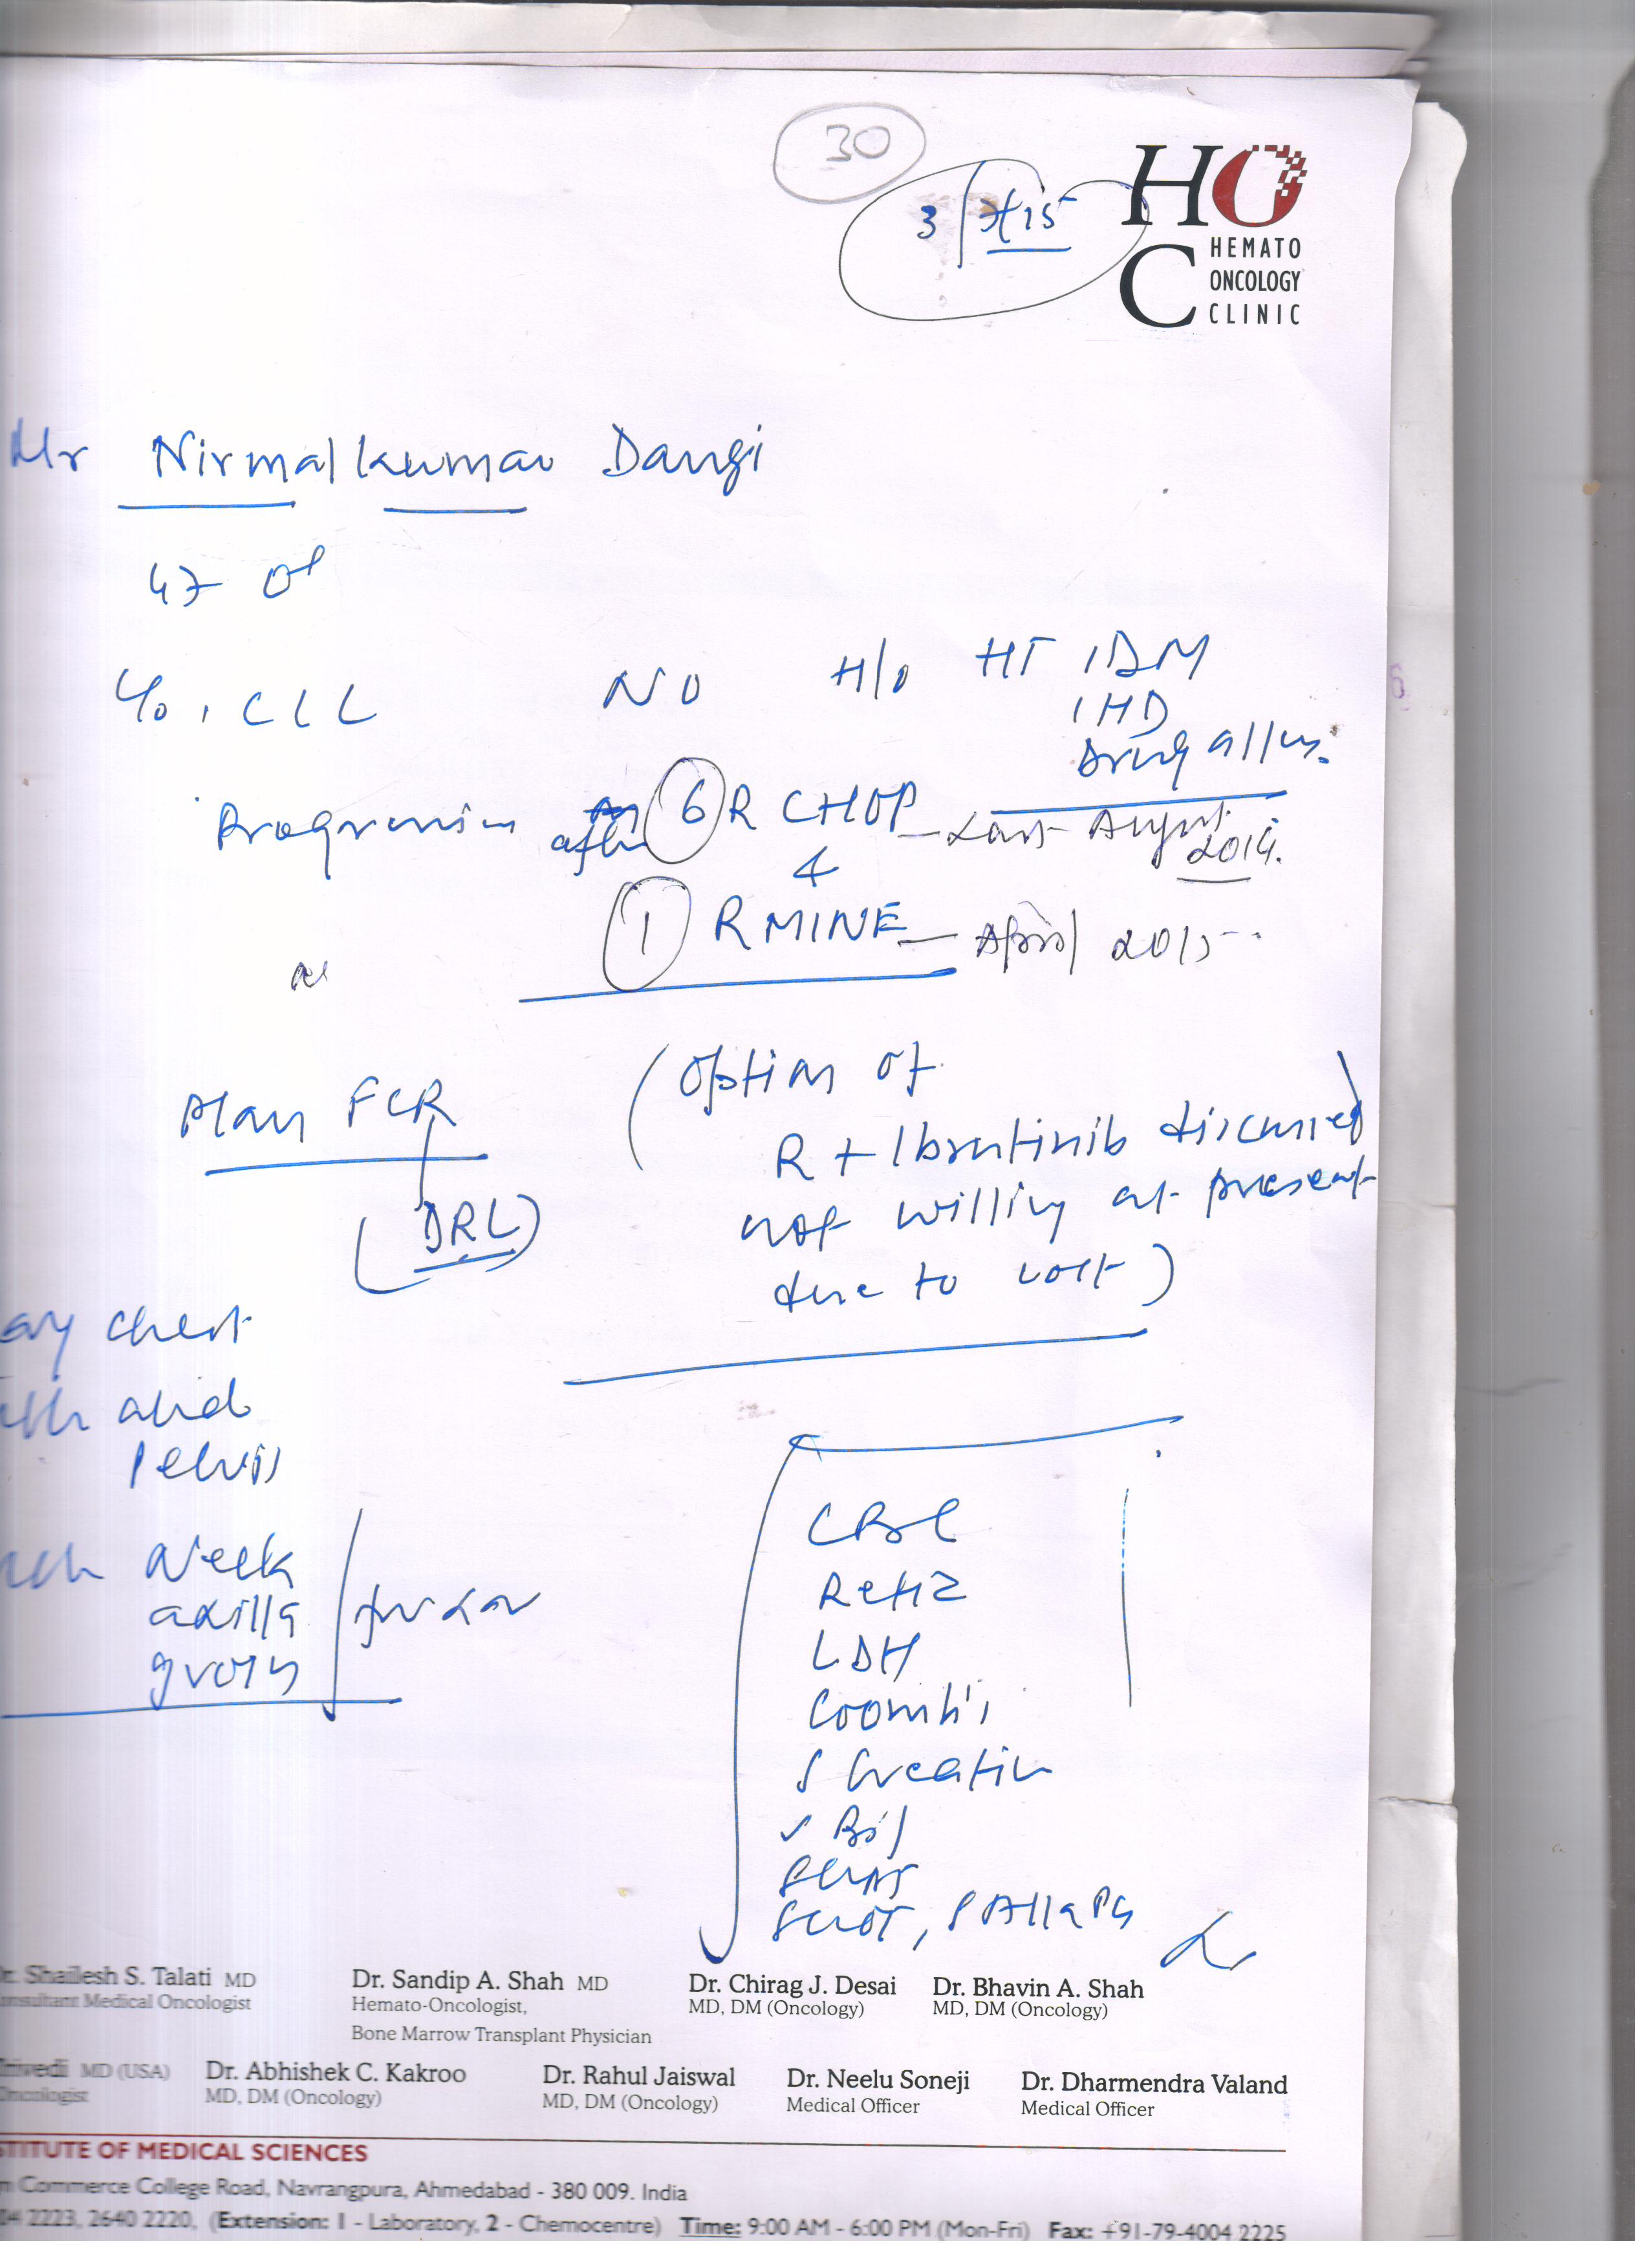 30
3/7/15
HOC
HEMATO
ONCOLOGY
CLINIC
Mr Nirmalkumar Dangi
47
CLL NO H/O HT / DM
IHD
Drug allergy
Progression after 6 R CHOP - Last August 2014.
&
1 R MINE - April 2015
Plan FCR (Option of
R + Ibrutinib discussed
not willing at present
due to cost)
(DRL)
ay chest
abd
pelvis
Neck
axilla
groin
for LN
CBC
Retic
LDH
Coomb's
S Creatin
Bil
SGPT
SGOT, S Alk
Dr. Shailesh S. Talati MD
onsultant Medical Oncologist
Dr. Sandip A. Shah MD
Hemato-Oncologist,
Bone Marrow Transplant Physician
Dr. Chirag J. Desai
MD, DM (Oncology)
Dr. Bhavin A. Shah
MD, DM (Oncology)
rivedi MD (USA)
Oncologist
Dr. Abhishek C. Kakroo
MD, DM (Oncology)
Dr. Rahul Jaiswal
MD, DM (Oncology)
Dr. Neelu Soneji
Medical Officer
Dr. Dharmendra Valand
Medical Officer
STITUTE OF MEDICAL SCIENCES
Commerce College Road, Navrangpura, Ahmedabad - 380 009. India
04 2223, 2640 2220, (Extension: 1 - Laboratory, 2 - Chemocentre) Time: 9:00 AM - 6:00 PM (Mon-Fri) Fax: +91-79-4004 2225